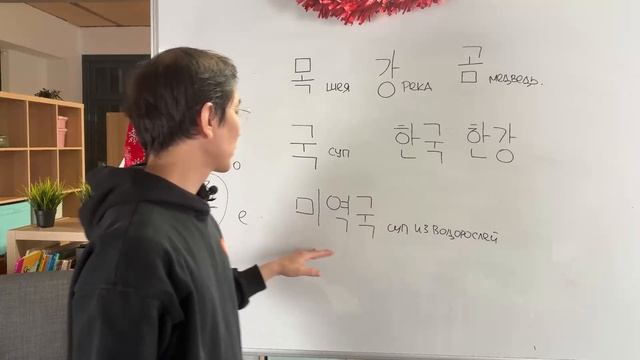 목 шея 강 река 곰 медведь.
국 суп 한국 한강
о
미역국 суп из водорослей
е